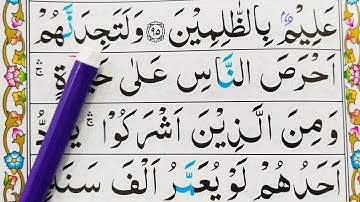 عَلِيْمٌۢ بِالظّٰلِمِيْنَ ﴿٩٥﴾ وَلَتَجِدَنَّهُمْ
اَحْرَصَ النَّاسِ عَلٰى حَيٰوةٍ ۛۚ
وَمِنَ الَّذِيْنَ اَشْرَكُوْا ۛۚ يَوَدُّ
اَحَدُهُمْ لَوْ يُعَمَّرُ اَلْفَ سَنَةٍ